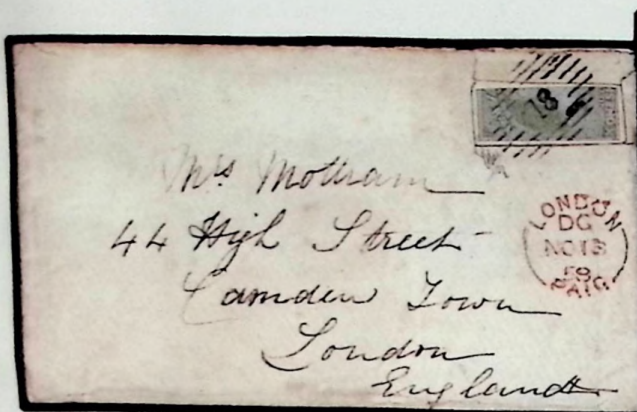 18
Mrs Mottram
44 High Street
Camden Town
London
England
LONDON
DG
NO 13
58
PAID